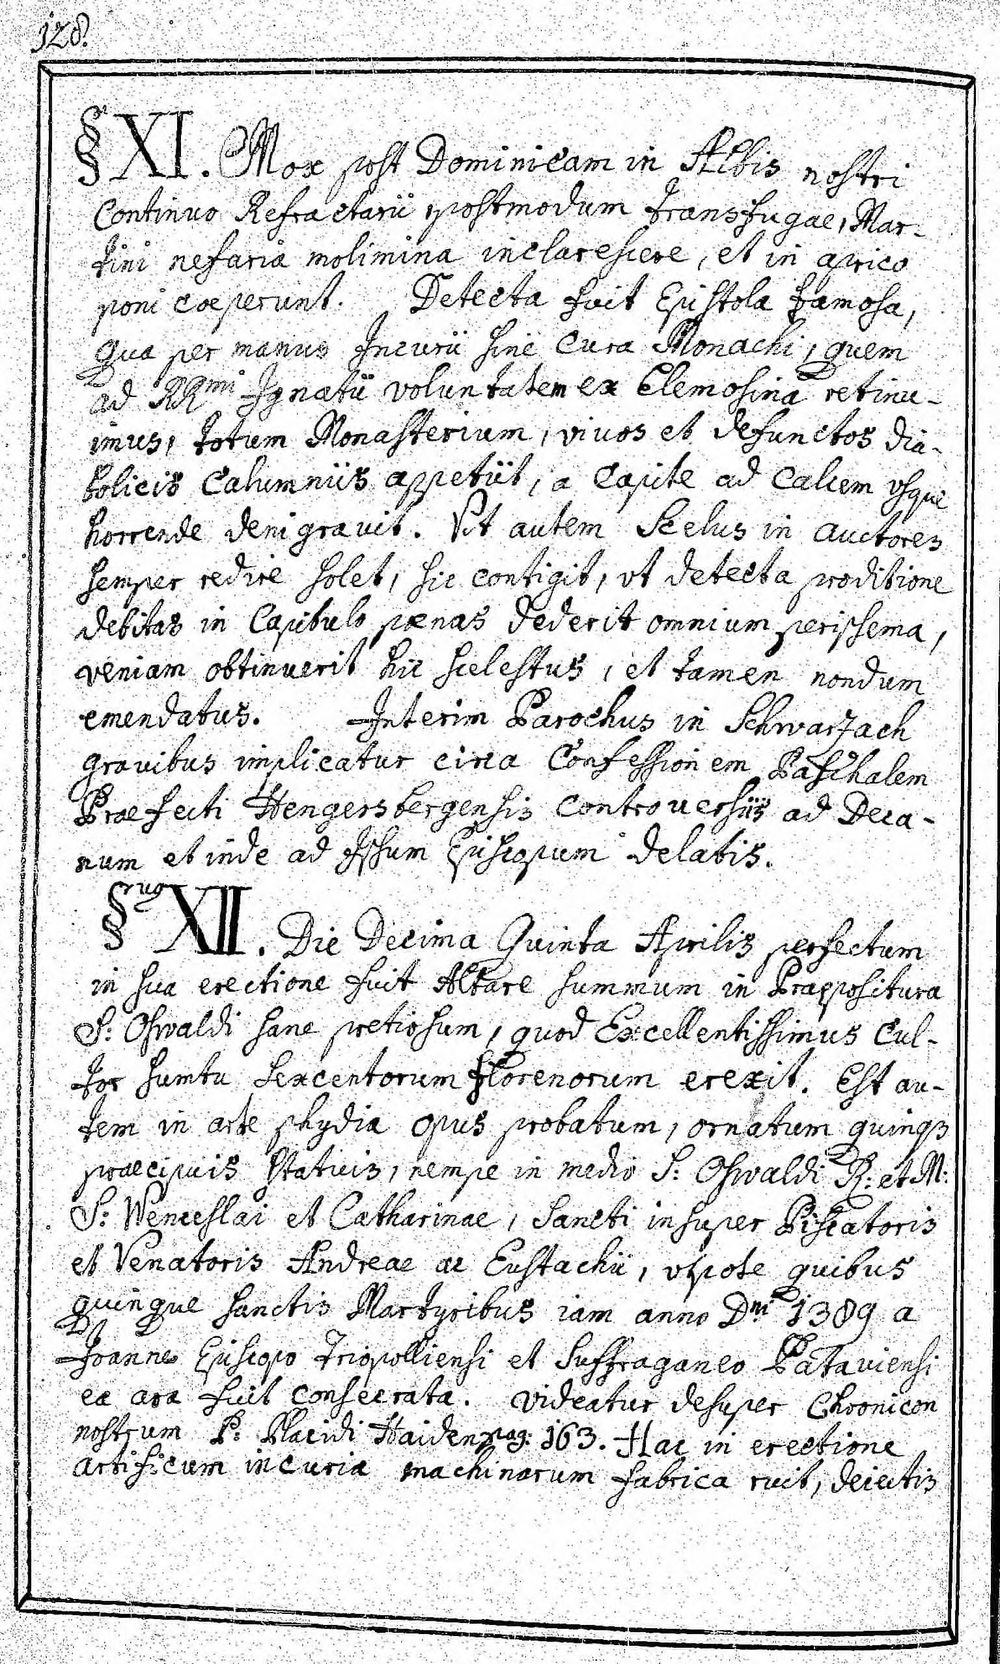 128.
§ XI. Mox post Dominicam in Albis nostri
Continuo Refractarii postmodum transfugae, Mar-
tini nefaria molimina inclarescere, et in aprico
poni coeperunt. Detecta fuit Epistola famosa,
qua per manus Incurii sine Cura Monachi, quem
ad RRmi Ignatii voluntatem ex Elemosina retinu-
imus, totum Monasterium, vivos et defunctos dia-
bolicis Calumniis appetiit, a Capite ad Calcem usque
horrende denigravit. Ut autem Scelus in auctores
semper redire solet, sic contigit, ut detecta proditione
debitas in Capitulo poenas dederit omnium peripsema,
veniam obtinuerit hic scelestus, et tamen nondum
emendatus. Interim Parochus in Schwarzach
gravibus implicatur circa Confessionem Paschalem
Praefecti Hengersbergensis Controversiis ad Deca-
num et inde ad Ipsum Episcopum delatis.
§rug XII. Die Decima Quinta Aprilis perfectum
in sua erectione fuit Altare summum in Praepositura
S: Oswaldi sane pretiosum, quod Excellentissimus Cul-
tor sumtu Sexcentorum florenorum erexit. Est au-
tem in arte phydia opus probatum, ornatum quinq3
praecipuis statuis, nempe in medio S: Oswaldi R: et M:
S: Wenceslai et Catharinae, Sancti insuper Piscatoris
et Venatoris Andreae ac Eustachii, utpote quibus
quinque sanctis Martyribus iam anno Dni 1389 a
Joanne Episcopo Tripolliensi et Suffraganeo Pataviensi
ea ara fuit consecrata. Videatur desuper Chronicon
nostrum P: Placidi Haiden pag: 163. Hac in erectione
artificum incuria machinarum fabrica ruit, deiectis